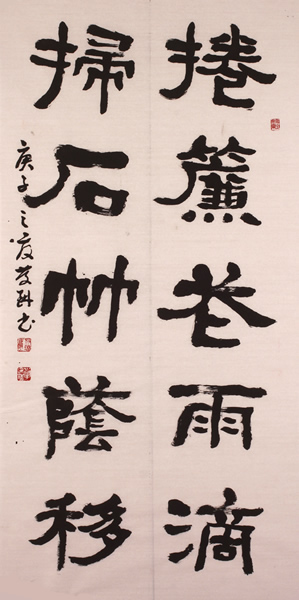 捲簾花雨滴
掃石竹陰移
庚子之夏
書